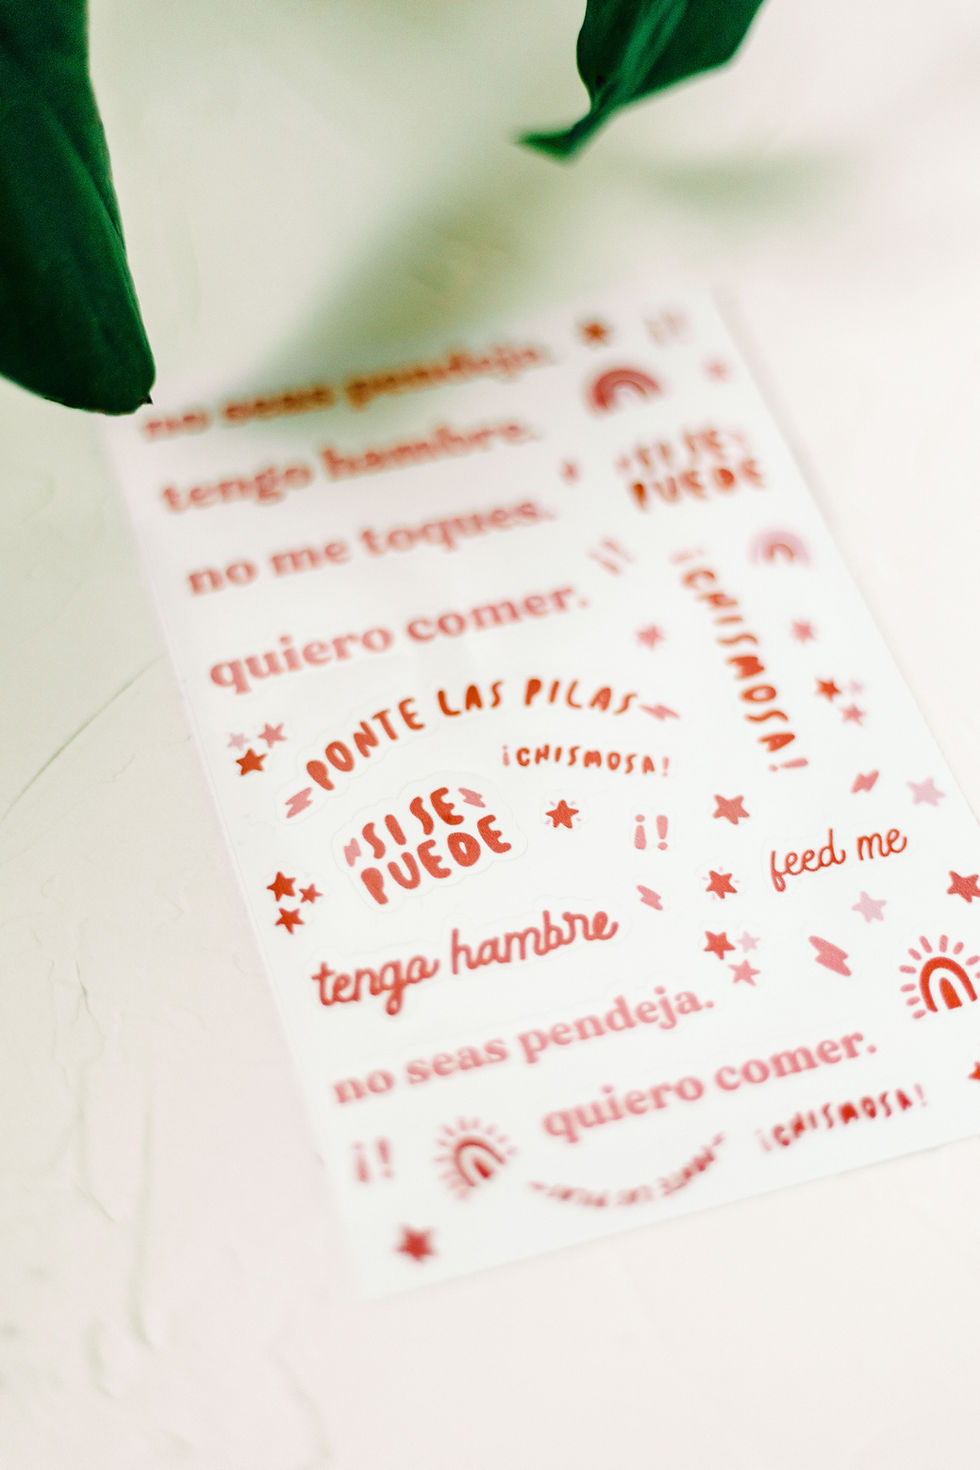 no seas pendeja.
tengo hambre.
¡!
SI SE
PUEDE
no me toques.
¡!
quiero comer.
¡CHISMOSA!
PONTE LAS PILAS
¡CHISMOSA!
SI SE
PUEDE
¡!
feed me
tengo hambre
no seas pendeja.
quiero comer.
¡CHISMOSA!
¡!
PONTE LAS PILAS